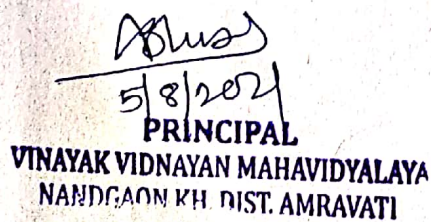 5/8/2021
PRINCIPAL
VINAYAK VIDNAYAN MAHAVIDYALAYA
NANDGAON KH. DIST. AMRAVATI